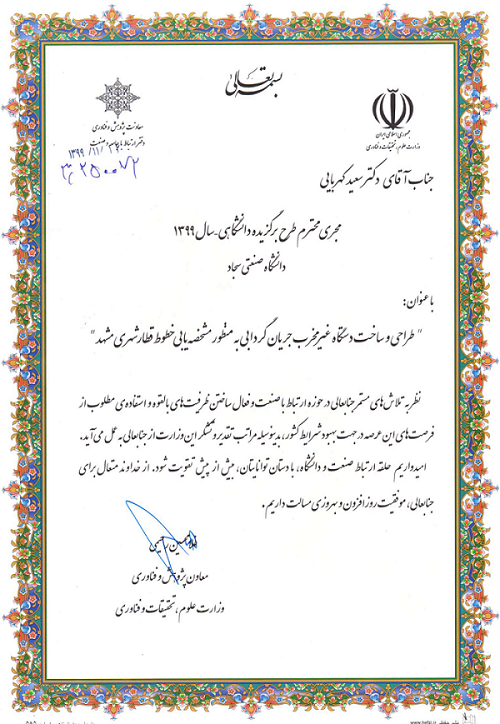 بسمه تعالی
جمهوری اسلامی ایران
وزارت علوم، تحقیقات و فناوری
معاونت پژوهش و فناوری
دفتر ارتباط با جامعه و صنعت
جناب آقای دکتر سعید کهربایی
مجری محترم طرح برگزیده دانشگاهی-سال ۱۳۹۹
دانشگاه صنعتی سجاد
با عنوان:
" طراحی و ساخت دستگاه غیر مخرب جریان گردابی به منظور مشخصه یابی خطوط قطار شهری مشهد "
نظر به تلاش های مستمر جنابعالی در حوزه ارتباط با صنعت و فعال ساختن ظرفیت های بالقوه و استفاده ی مطلوب از
فرصت های این عرصه در جهت بهبود شرایط کشور، بدینوسیله مراتب تقدیر و تشکر این وزارت از جنابعالی به عمل می آید.
امیدواریم حلقه ارتباط صنعت و دانشگاه، با دستان توانایتان، بیش از پیش تقویت شود. از خداوند متعال برای
جنابعالی، موفقیت روزافزون و بهروزی مسالت داریم.
معاون پژوهش و فناوری
وزارت علوم، تحقیقات و فناوری